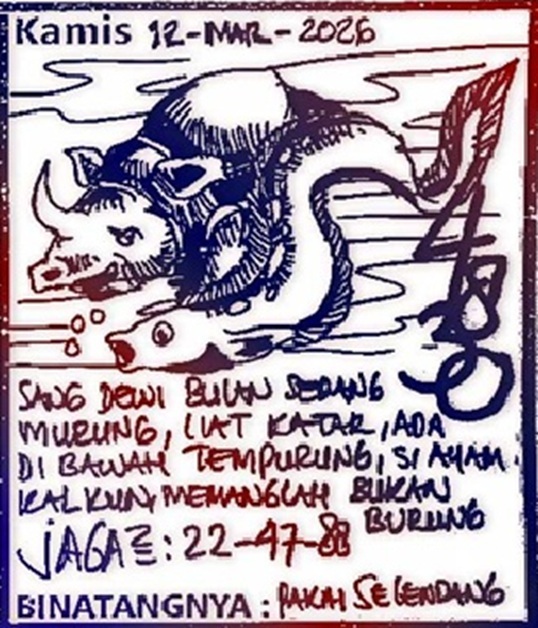 Kamis 12-MAR-2026
SANG DEWI BULAN SEDANG
MURUNG, LIAT KATAK, ADA
DI BAWAH TEMPURUNG, SI AYAM
KALKUN, MEMANGLAH BUKAN
BURUNG
JAGA²: 22-47-88
BINATANGNYA: PAKAI SELENDANG